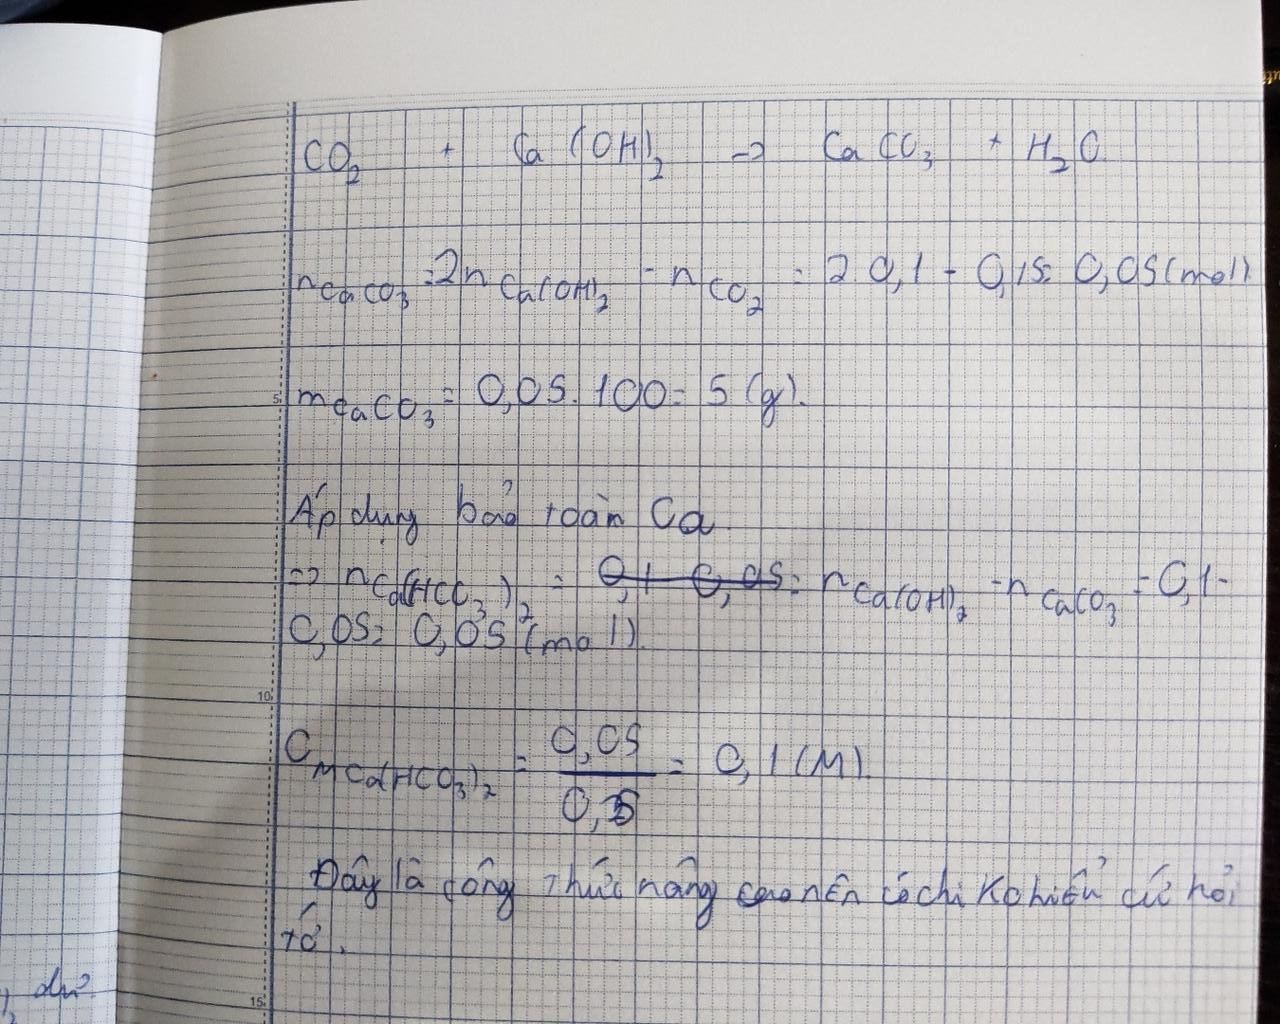 CO₂ + Ca(OH)₂ → CaCO₃ + H₂O
nCaCO₃ = 2nCa(OH)₂ - nCO₂ = 2.0,1 - 0,15 = 0,05 (mol)
5
mCaCO₃ = 0,05.100 = 5 (g).
Áp dụng bảo toàn Ca
=> nCa(HCO₃)₂ = 0,1 - 0,05 = nCa(OH)₂ - nCaCO₃ = 0,1 -
0,05 = 0,05 (mol).
10
CM Ca(HCO₃)₂ = 0,05 / 0,5 = 0,1 (M).
Đây là công thức nâng cao nên có chi ko hiểu cứ hỏi
tớ.
dư
15